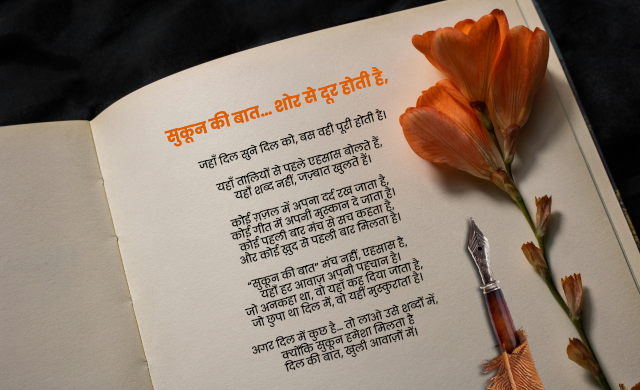 सुकून की बात... शोर से दूर होती है,
जहाँ दिल सुने दिल को, बस वही पूरी होती है।
यहाँ तालियों से पहले एहसास बोलते हैं,
यहाँ शब्द नहीं, जज़्बात खुलते हैं।
कोई ग़ज़ल में अपना दर्द रख जाता है,
कोई गीत में अपनी मुस्कान दे जाता है।
कोई पहली बार मंच से सच कहता है,
और कोई खुद से पहली बार मिलता है।
“सुकून की बात” मंच नहीं, एहसास है,
यहाँ हर आवाज़ अपनी पहचान है।
जो अनकहा था, वो यहाँ कह दिया जाता है,
जो छुपा था दिल में, वो यहीं मुस्कुराता है।
अगर दिल में कुछ है... तो लाओ उसे शब्दों में,
क्योंकि सुकून हमेशा मिलता है
दिल की बात, खुली आवाज़ों में।